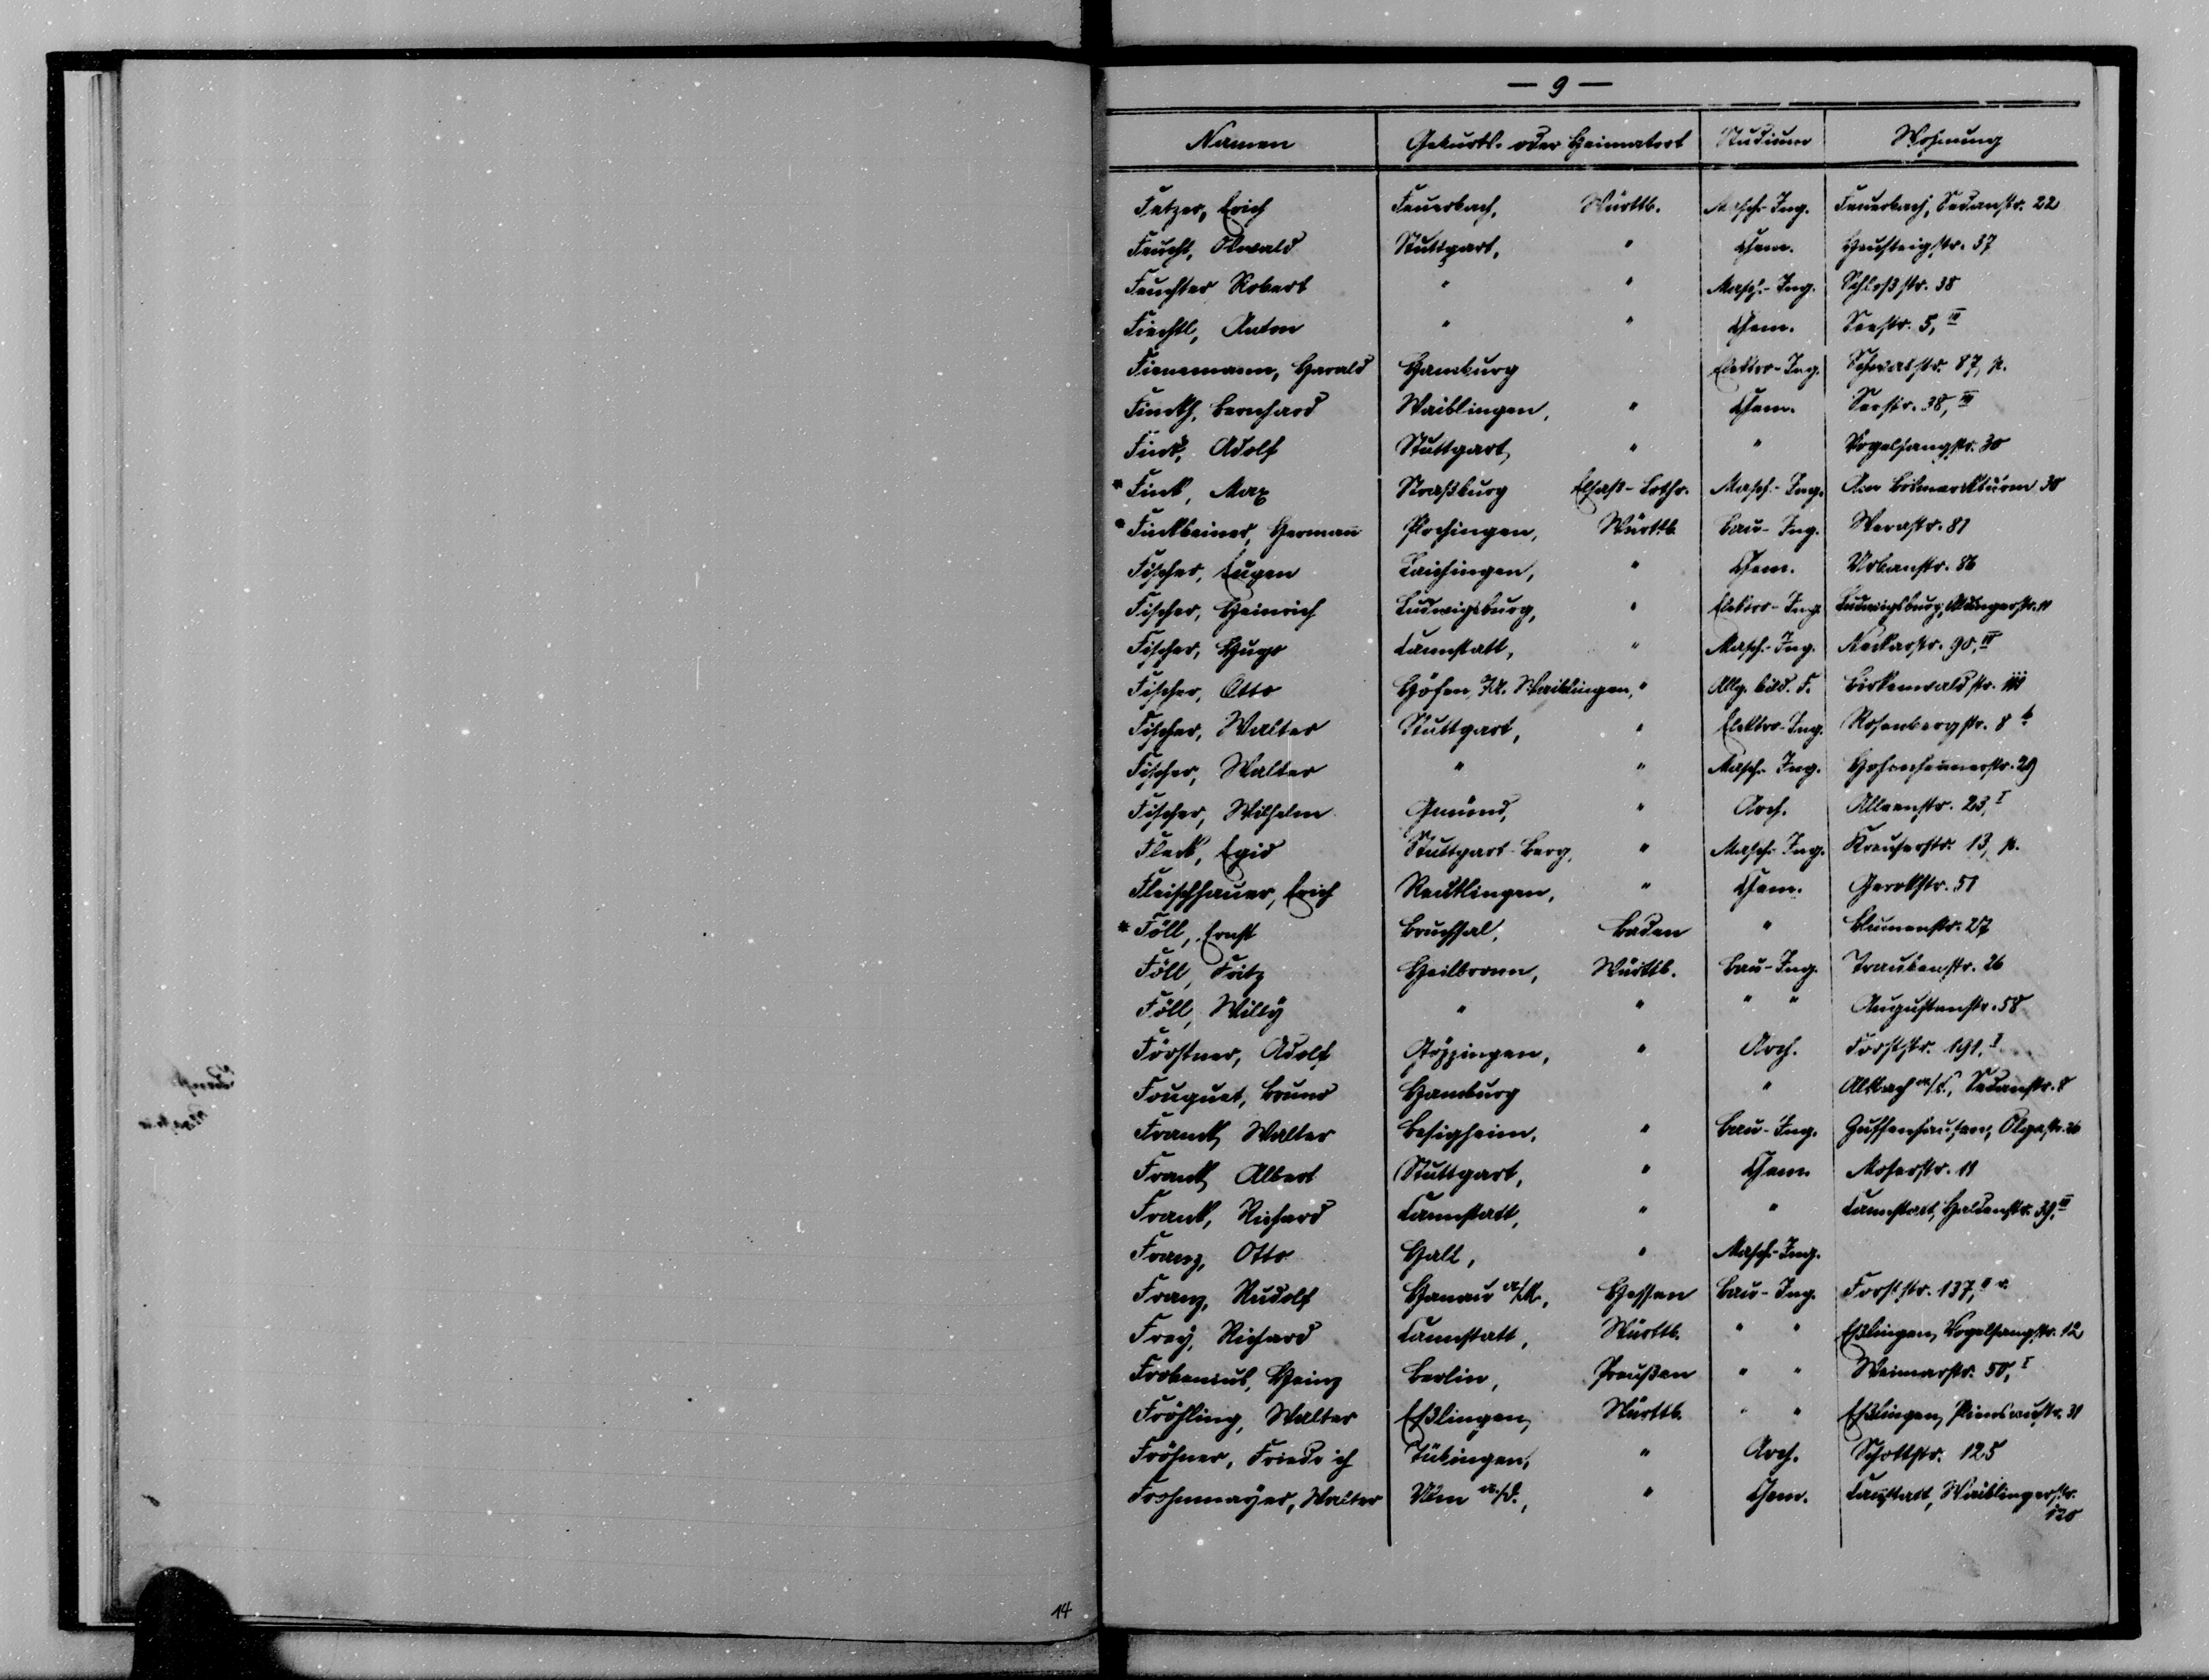 — 9 —
Namen Geburts- oder Heimatort Studium Wohnung
Fetzer, Erich Feuerbach, Württb. Masch.-Ing. Feuerbach, Sedanstr. 22
Feucht, Oswald Stuttgart, " Chem. Heusteigstr. 37
Feuchter Robert " " Masch.-Ing. Schloßstr. 38
Fiechtl, Anton " " Chem. Seestr. 5, III
Fienemann, Harald Hamburg Elektro-Ing. Schwabstr. 87, p.
Finckh, Bernhard Waiblingen, " Chem. Seestr. 38, III
Fink, Adolf Stuttgart, " " Vogelsangstr. 30
* Fink, Max Straßburg Elsaß-Lothr. Masch.-Ing. Am Bismarckturm 30
* Finkbeiner, Hermann Plochingen, Württb. Bau-Ing. Werastr. 81
Fischer, Eugen Laichingen, " Chem. Urbanstr. 86
Fischer, Heinrich Ludwigsburg, " Elektro-Ing. Ludwigsburg, Aldingerstr. 11
Fischer, Hugo Cannstatt, " Masch.-Ing. Neckarstr. 90, IV
Fischer, Otto Höfen, O.A. Waiblingen, " Allg. bild. F. Birkenwaldstr.
Fischer, Walter Stuttgart, " Elektro-Ing. Rosenbergstr. 8 b
Fischer, Walter " " Masch.-Ing. Hohenheimerstr. 29
Fischer, Wilhelm Gmünd, " Arch. Alleenstr. 23, I
Fleck, Egid Stuttgart-Berg, " Masch.-Ing. Kreuserstr. 13, p.
Fleischhauer, Erich Reutlingen, " Chem. Gerokstr. 51
* Föll, Ernst Bruchsal, Baden " Blumenstr. 27
Föll, Fritz Heilbronn, Württb. Bau-Ing. Traubenstr. 26
Föll, Willy " " " " Augustenstr. 58
Förstner, Adolf Göppingen, " Arch. Forststr. 191, I
Fouquet, Bruno Hamburg " Altbach a/N., Sedanstr. 8
Franck, Walter Besigheim, " Bau-Ing. Zuffenhausen, Olgastr. 26
Frank, Albert Stuttgart, " Chem. Moserstr. 11
Frank, Richard Cannstatt, " " Cannstatt, Haldenstr. 39, III
Franz, Otto Hall, " Masch.-Ing.
Franz, Rudolf Hanau a/M., Hessen Bau-Ing. Forststr. 137, II r.
Frey, Richard Cannstatt, Württb. " " Eßlingen, Vogelsangstr. 12
Frobenius, Heinz Berlin, Preußen " " Weimarstr. 50, I
Fröhling, Walter Eßlingen, Württb. " " Eßlingen, Pliensaustr. 31
Fröhner, Friedrich Tübingen, " Arch. Schottstr. 125
Frohnmayer, Walter Ulm a./D., " Chem. Cannstatt, Waiblingerstr.
120
14